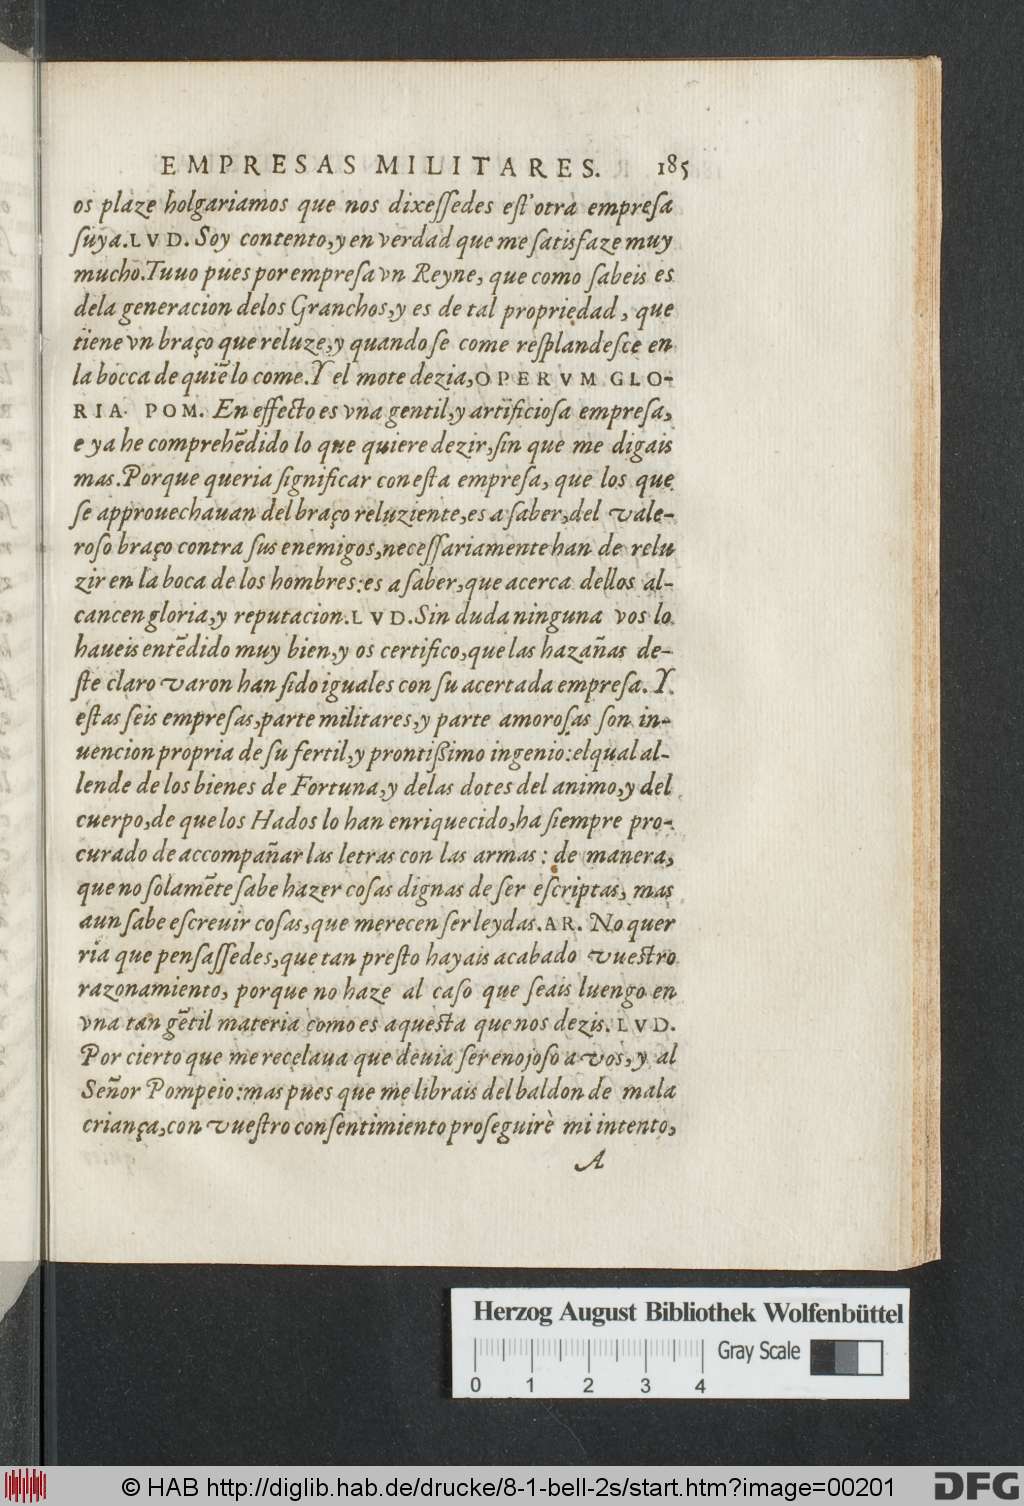 EMPRESAS MILITARES. 185
os plaze holgariamos que nos dixeſſedes eſt'otra empreſa
ſuya.LVD. Soy contento,y en verdad que me ſatisfaze muy
mucho.Tuuo pues por empreſa vn Reyne, que como ſabeis es
dela generacion delos Granchos,y es de tal propriedad, que
tiene vn braço que reluze,y quando ſe come reſplandeſce en
la bocca de quiẽ lo come.Y el mote dezia,OPERVM GLO-
RIA. POM. En effecto es vna gentil,y artificioſa empreſa,
e ya he comprehẽdido lo que quiere dezir,ſin que me digais
mas.Porque queria ſignificar con eſta empreſa, que los que
ſe approuechauan del braço reluziente,es a ſaber,del vale-
roſo braço contra ſus enemigos,neceſſariamente han de relu
zir en la boca de los hombres:es a ſaber,que acerca dellos al-
cancen gloria,y reputacion.LVD.Sin duda ninguna vos lo
haueis entẽdido muy bien,y os certifico,que las hazañas de-
ſte claro varon han ſido iguales con ſu acertada empreſa. Y
eſtas ſeis empreſas,parte militares,y parte amoroſas ſon in-
uencion propria de ſu fertil,y prontißimo ingenio:elqual al-
lende de los bienes de Fortuna,y delas dotes del animo,y del
cuerpo,de que los Hados lo han enriquecido,ha ſiempre pro-
curado de accompañar las letras con las armas: de manera,
que no ſolamẽte ſabe hazer coſas dignas de ſer eſcriptas, mas
aun ſabe eſcreuir coſas,que merecen ſer leydas.AR. No quer
ria que penſaſſedes,que tan preſto hayais acabado vueſtro
razonamiento, porque no haze al caſo que ſeais luengo en
vna tan gẽtil materia como es aqueſta que nos dezis.LVD.
Por cierto que me recelaua que deuia ſer enojoſo a vos,y al
Señor Pompeio:mas pues que me librais del baldon de mala
criança,con vueſtro conſentimiento proſeguirè mi intento,
A
Herzog August Bibliothek Wolfenbüttel
Gray Scale
0 1 2 3 4
© HAB http://diglib.hab.de/drucke/8-1-bell-2s/start.htm?image=00201
DFG